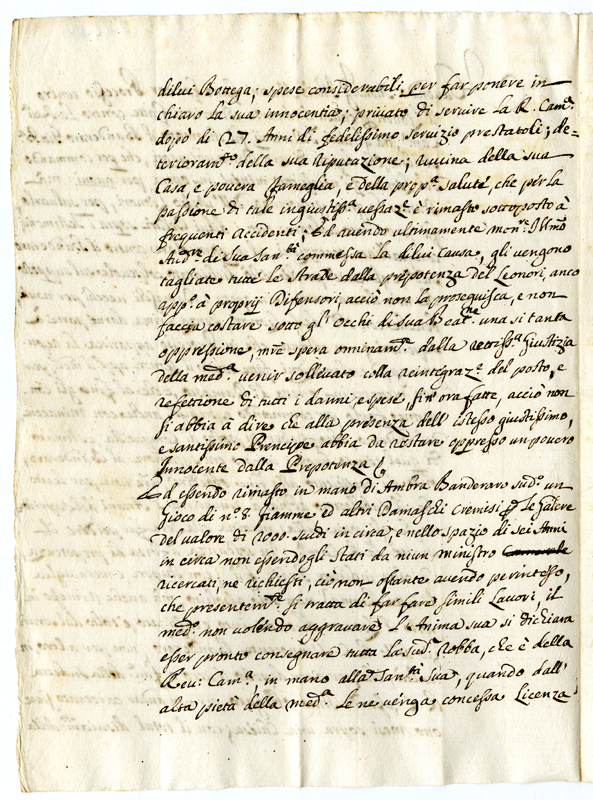 dilui Bottega; spese considerabili per far ponere in
chiaro la sua innocentia; privato di servire la R. Cam.ª
dopò di 27. Anni di fedelissimo servizio prestatoli; de=
terioram.to della sua riputazione; ruvina della sua
Casa, e povera fameglia, e della prop.ª salute, che per la
passione di tale ingiustiss.ª vessaz.e è rimasto sottoposto à
frequenti accidenti; Ed avendo ultimamente mons.re Ill.mo
Aud.re di sua San.tà commessa la dilui Causa, gli vengono
tagliate tutte le strade dalla prepotenza del Leonori, anco
app.º à proprij Difensori, acciò non la proseguisca, e non
faccia costare sotto gl' occhi di sua Beat.ne una si tanta
oppressione, m̃re spera onninam.e dalla rettiss.ª Giustizia
della med.ª venir sollevato colla reintegraz.e del posto, e
refettione di tutti i danni, e spese, fin' ora fatte, acciò non
si abbia à dire che alla presenza dell' istesso giustissimo,
e santissimo Prencipe abbia da restare oppresso un povero
Innocente dalla Prepotenza
Ed essendo rimasto in mano di Ambra Banderaro sud.º un
Gioco di n.º 8. fiamme ed altri Damaschi Cremisi p̱ le Galere
del valore di 2000. scudi in circa, e nello spazio di sei Anni
in circa non essendogli stati da niun ministro
ricercati, ne richiesti, ciò non ostante avendo per inteso,
che presentem.te si tratta di far fare simili Lavori, il
med.º non volendo aggravare l' Anima sua si dichiara
esser pronto consegnare tutta la sud.ª robba, che è della
Reu: Cam.ª in mano alla San.tà Sua, quando dall'
alta pietà della med.ª le ne venga concessa Licenza